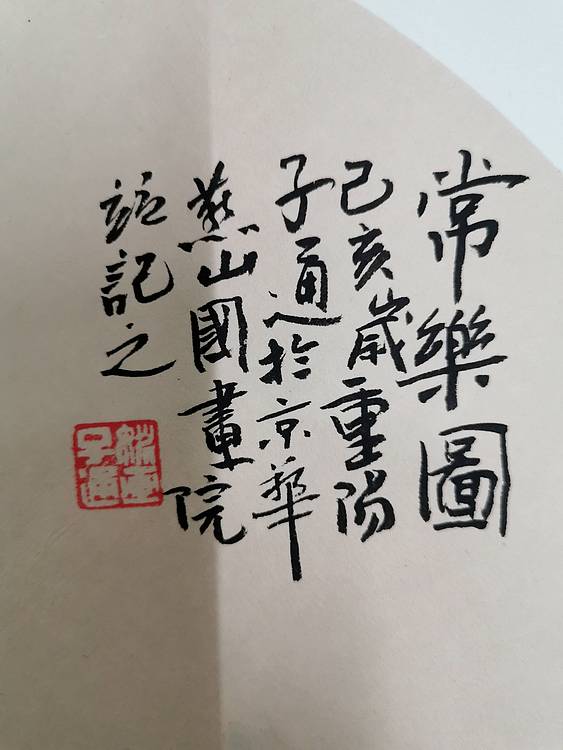 常樂圖
己亥歲重陽
子通於京華
燕山國畫院
記之
子通